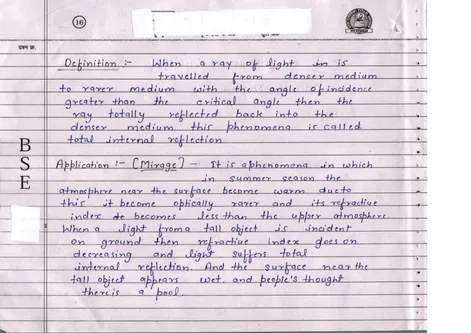 16
प्रश्न क्र.
Definition :- When a ray of light in is
travelled from denser medium
to rarer medium with the angle of incidence
greater than the critical angle then the
ray totally reflected back into the
denser medium this phenomena is called
total internal reflection
B
S
E
Application :- [Mirage] - It is a phenomena in which
in summer season the
atmosphere near the surface become warm due to
this it become optically rarer and its refractive
index de becomes less than the upper atmosphere.
When a light from a tall object is incident
on ground then refractive index goes on
decreasing and light suffers total
internal reflection. And the surface near the
tall object appears wet. and people's thought
there is a pool.